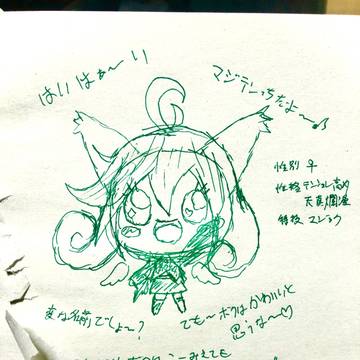 はいはぁ〜い
マジテンっちだよ〜♪
性別 ♀
性格 テンション高め
天真爛漫
特技
変な名前でしょ〜?
でも〜ボクはかわいいと
思うな〜♡